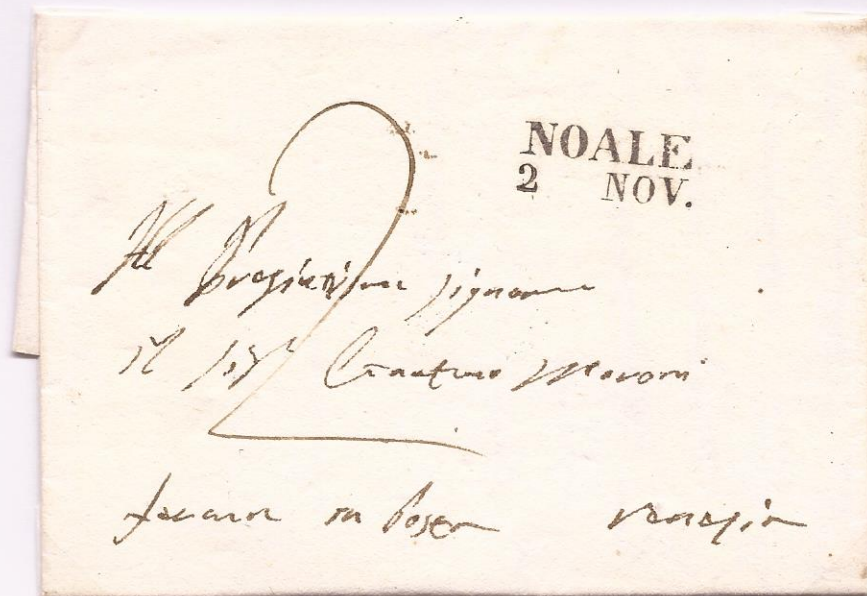 NOALE
2 NOV.
2
Al Pregiatissimo Signore
il Sigr Moroni
ferma in Posta Venezia